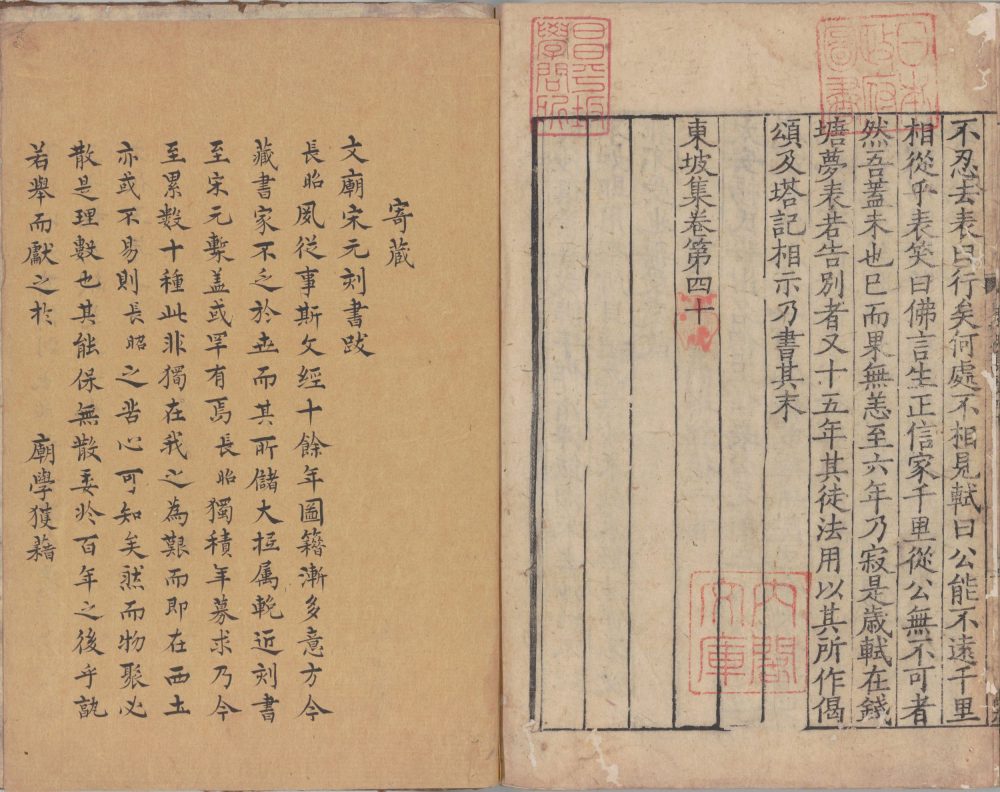 不忍去表曰行矣何處不相見軾曰公能不遠千里
相從乎表笑曰佛言生正信家千里從公無不可者
然吾蓋未也已而果無恙至六年乃寂是歲軾在錢
塘夢表若告別者又十五年其徒法用以其所作偈
頌及塔記相示乃書其末
東坡集卷第四十
日本
政府
圖書
昌平坂
學問所
內閣
文庫
寄藏
文廟宋元刻書跋
長昭夙從事斯文經十餘年圖籍漸多意方今
藏書家不乏於世而其所儲大抵屬輓近刻書
至宋元槧蓋或罕有焉長昭獨積年募求乃今
至累數十種此非獨在我之為艱而即在西土
亦或不易則長昭之苦心可知矣然而物聚必
散是理數也其能保無散委於百年之後乎孰
若舉而獻之於 廟學獲藉